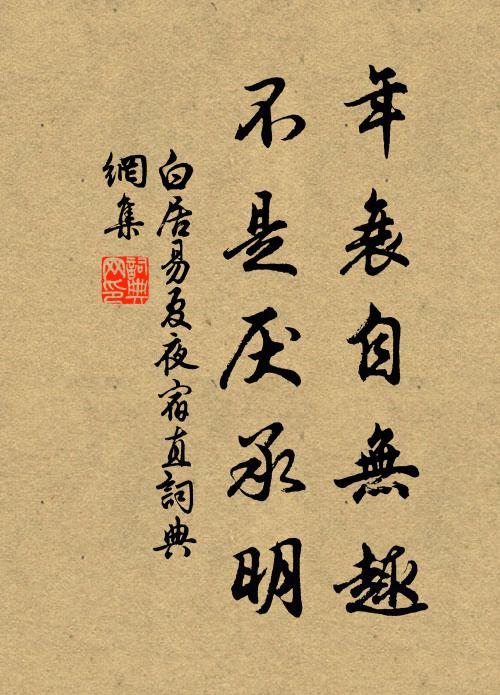 年衰自無趣
不是厌承明
白居易夏夜宿直詞典
網集
詞典
网印